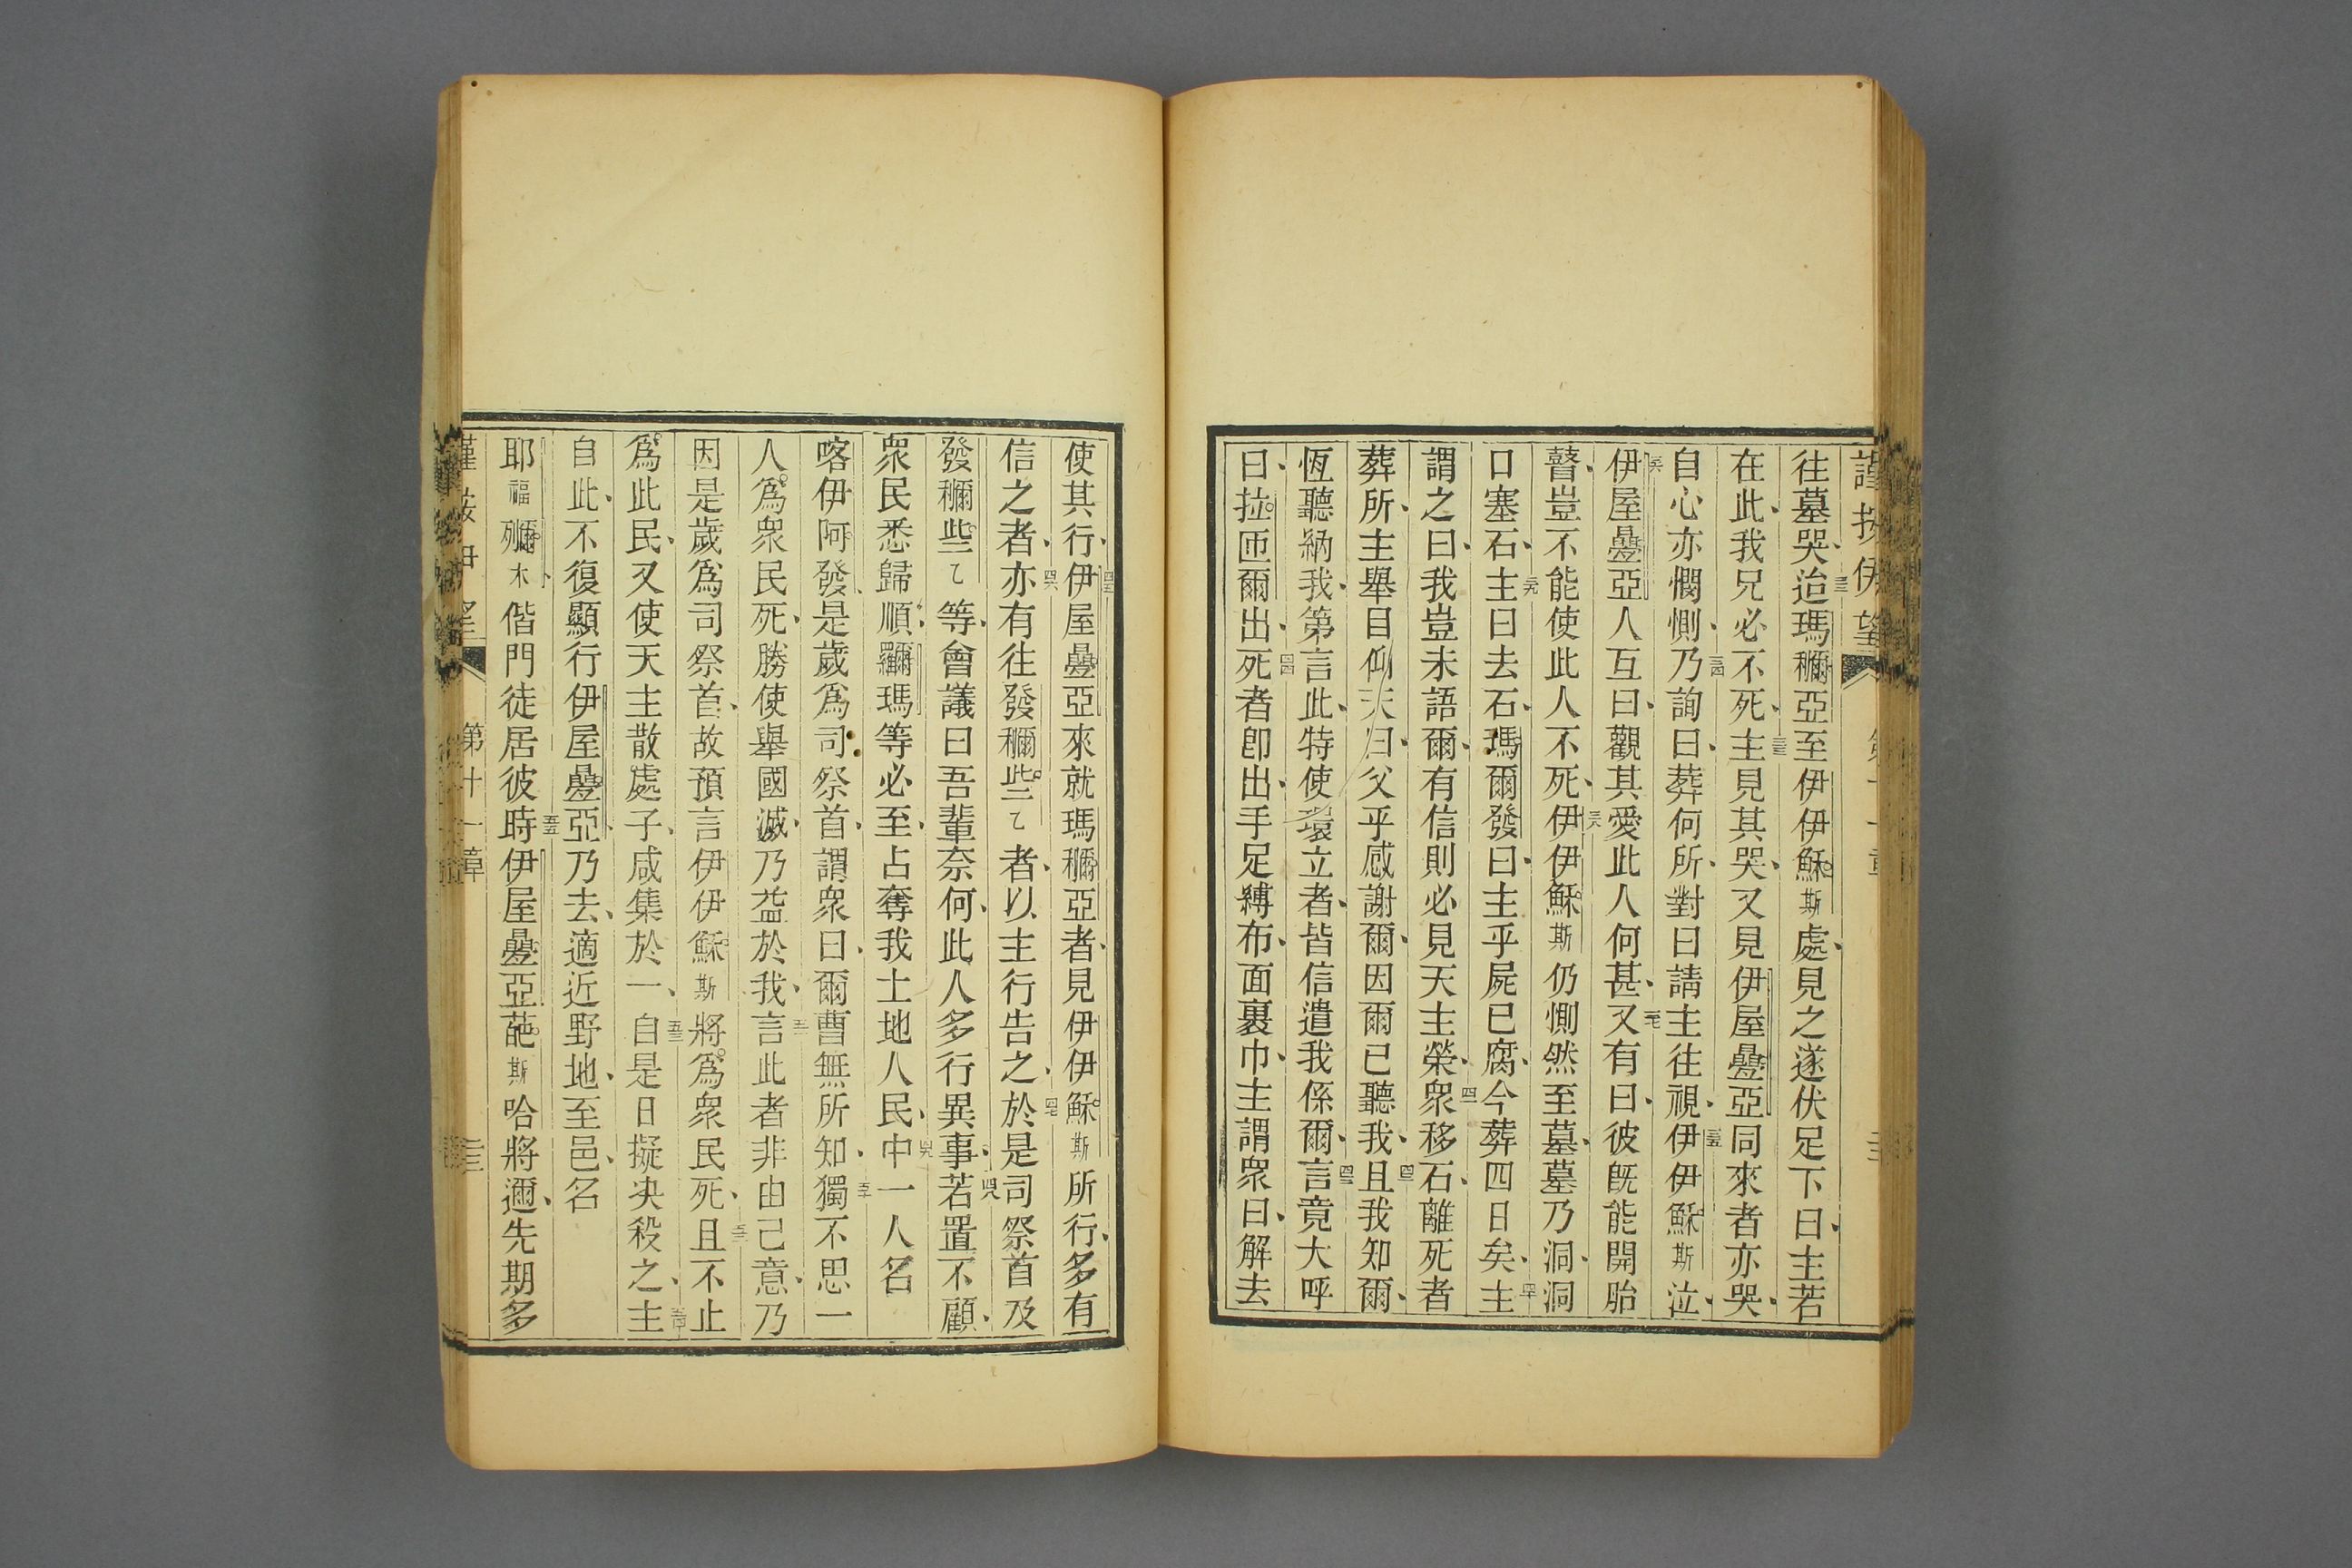 往墓哭、三二迨瑪𥡝亞至伊伊穌斯處、見之、遂伏足下曰、主若
在此、我兄必不死、三三主見其哭、又見伊屋疊亞同來者亦哭、
自心亦憫惻、三四乃詢曰、葬何所、對曰、請主往視、三五伊伊穌斯泣、
三六伊屋疊亞人互曰、觀其愛此人何甚、三七又有曰、彼旣能開胎
瞽、豈不能使此人不死、三八伊伊穌斯仍惻然至墓、墓乃洞、洞
口塞石、三九主曰、去石、瑪爾發曰、主乎、屍已腐、今葬四日矣、四十主
謂之曰、我豈未語爾、有信則必見天主榮、四一衆移石、離死者
葬所、主舉目仰天曰、父乎、感謝爾、因爾已聽我、四二且我知爾、
恆聽納我、第言此、特使環立者、皆信遣我係爾、四三言竟大呼
曰、拉匝爾出、四四死者卽出、手足縛布、面裹巾、主謂衆曰、解去
使其行、四五伊屋疊亞來就瑪𥡝亞者、見伊伊穌斯所行、多有
信之者、四六亦有往發𥡝些乙者、以主行告之、四七於是司祭首及
發𥡝些乙等、會議曰、吾輩奈何、此人多行異事、四八若置不顧、
衆民悉歸順、羅爾瑪等必至、占奪我土地人民、四九中一人名
喀伊阿發、是歲爲司祭首、謂衆曰、爾曹無所知、五十獨不思一
人爲衆民死、勝使舉國滅、乃益於我、五一言此者非由己意、乃
因是歲爲司祭首、故預言伊伊穌斯將爲衆民死、五二且不止
爲此民、又使天主散處子、咸集於一、五三自是日擬決殺之、五四主
自此、不復顯行伊屋疊亞、乃去、適近野地、至邑、名
耶福列爾木、偕門徒居彼時、五五伊屋疊亞葩斯哈將邇、先期多
第十一章